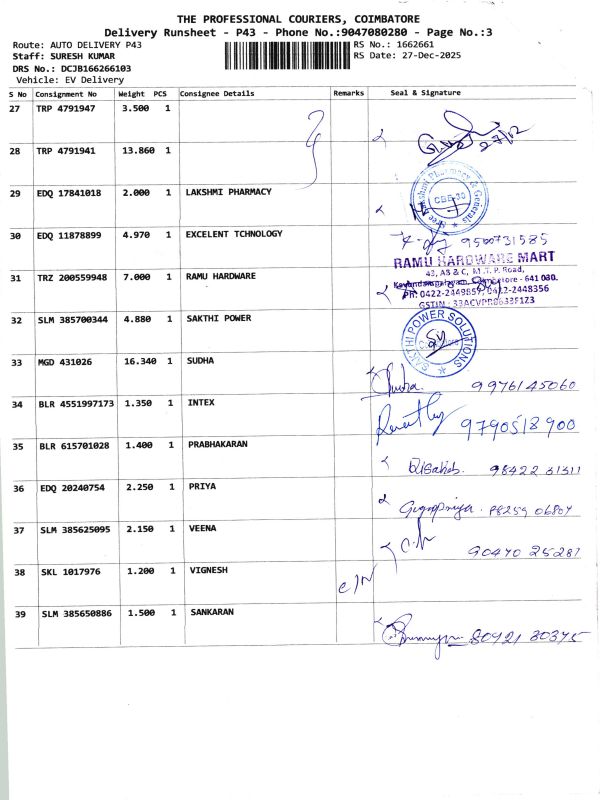 THE PROFESSIONAL COURIERS, COIMBATORE
Delivery Runsheet - P43 - Phone No.:9047080280 - Page No.:3
Route: AUTO DELIVERY P43
RS No.: 1662661
Staff: SURESH KUMAR
RS Date: 27-Dec-2025
DRS No.: DCJB166266103
Vehicle: EV Delivery
S No Consignment No Weight PCS Consignee Details Remarks Seal & Signature
27 TRP 4791947 3.500 1
27/12
28 TRP 4791941 13.860 1
29 EDQ 17841018 2.000 1 LAKSHMI PHARMACY
Sree Lakshmi Pharmacy & Generals
CBE-30
30 EDQ 11878899 4.970 1 EXCELENT TCHNOLOGY
9500731585
31 TRZ 200559948 7.000 1 RAMU HARDWARE
RAMU HARDWARE MART
43, A8 & C, M.T.P. Road,
Coimbatore - 641 030.
PH: 0422-2449857, 0422-2448356
32 SLM 385700344 4.880 1 SAKTHI POWER
SAKTHI POWER SOLUTIONS
33 MGD 431026 16.340 1 SUDHA
Sudha 9976145060
34 BLR 4551997173 1.350 1 INTEX
9790518900
35 BLR 615701028 1.400 1 PRABHAKARAN
98422 31311
36 EDQ 20240754 2.250 1 PRIYA
37 SLM 385625095 2.150 1 VEENA
90470 25287
38 SKL 1017976 1.200 1 VIGNESH
39 SLM 385650886 1.500 1 SANKARAN
80421 30375